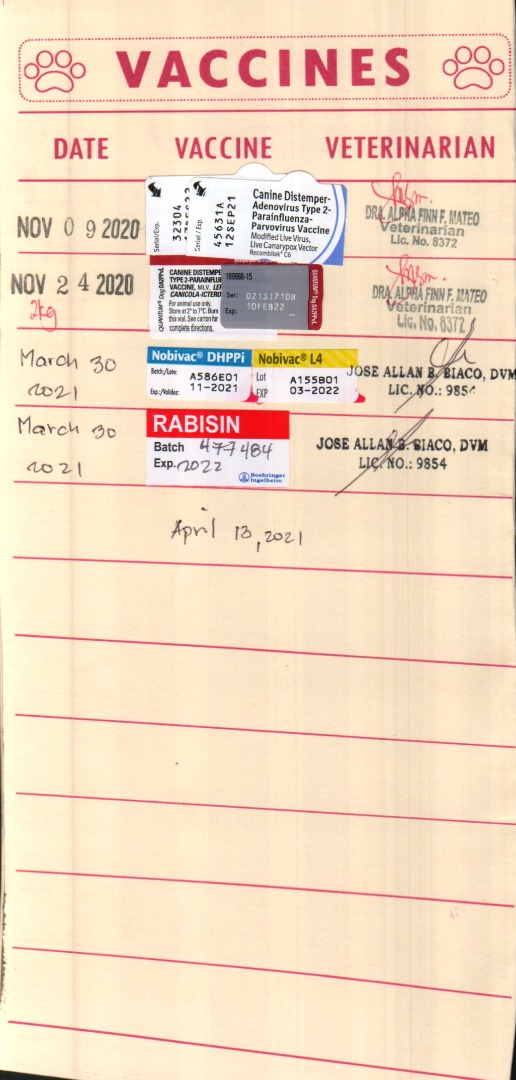 VACCINES
DATE VACCINE VETERINARIAN
NOV 09 2020
Serial/Exp.
32304
Serial / Exp.
45631A
12SEP21
Canine Distemper-
Adenovirus Type 2-
Parainfluenza-
Parvovirus Vaccine
Modified Live Virus,
Live Canarypox Vector
Recombitek® C6
DRA. ALPHA FINN F. MATEO
Veterinarian
Lic. No. 8372
NOV 24 2020
2kg
QUANTUM® Dog DA2PPvL
CANINE DISTEMPE
TYPE 2-PARAINFLU
VACCINE, MLV, LE
CANICOLA-ICTERO
For animal use only.
Store at 2° to 7°C. Burn
this vial. See carton for
complete directions.
189886-15
Ser: 02131710B
Exp: 10FEB22
DRA. ALPHA FINN F. MATEO
Veterinarian
Lic. No. 8372
March 30
2021
Nobivac® DHPPi
Batch/Lote: A586E01
Exp./Validez: 11-2021
Nobivac® L4
Lot A155B01
EXP 03-2022
JOSE ALLAN B. BIACO, DVM
LIC. NO.: 9854
March 30
2021
RABISIN
Batch 477484
Exp. 2022
Boehringer
Ingelheim
JOSE ALLAN B. BIACO, DVM
LIC. NO.: 9854
April 13, 2021